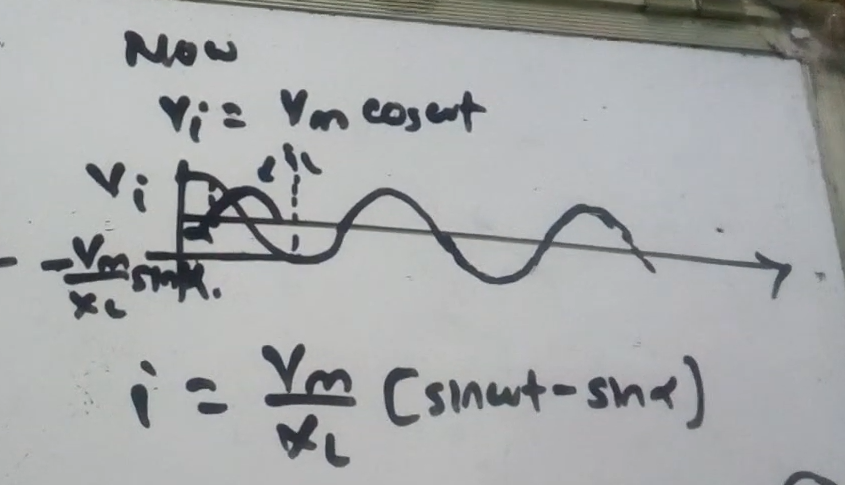 Now
Vi = Vm coswt
Vi
- -Vm/XL sinα.
i = Vm/XL (sinwt - sinα)